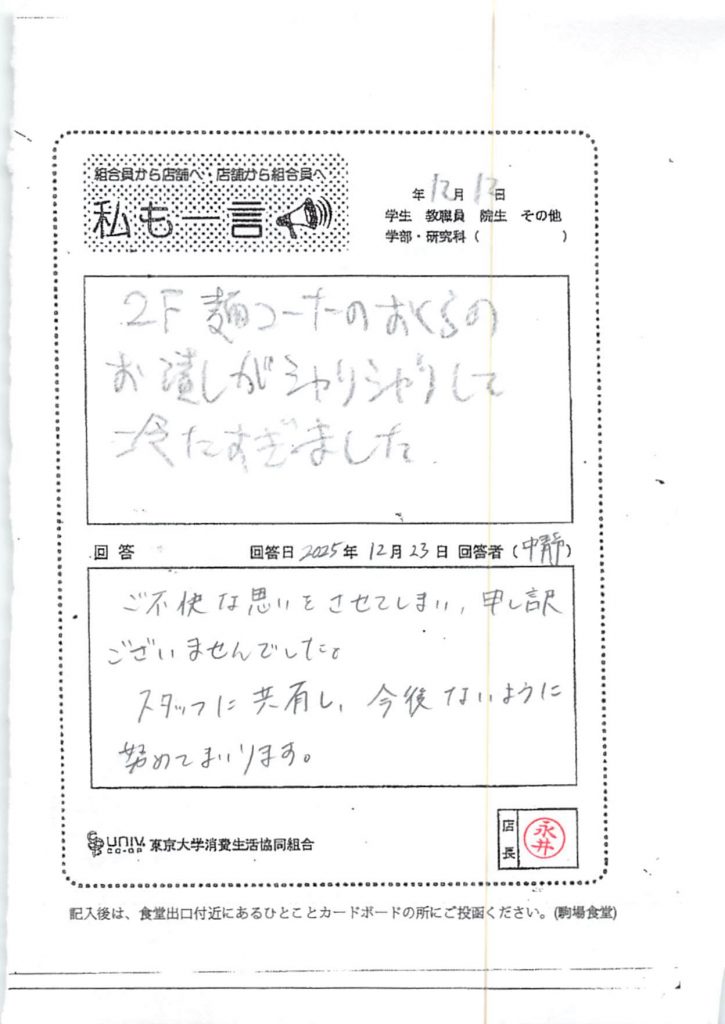 組合員から店舗へ・店舗から組合員へ
私も一言
年 12月 12日
学生 教職員 院生 その他
学部・研究科 ( )
2F 麺コーナーのおくらの
お漬しがシャリシャリして
冷たすぎました
回答 回答日 2025年 12月23日 回答者 (中靜)
ご不快な思いをさせてしまい、申し訳
ございませんでした。
スタッフに共有し、今後ないように
努めてまいります。
UNIV. CO-OP 東京大学消費生活協同組合
店長 永井
記入後は、食堂出口付近にあるひとことカードボードの所にご投函ください。(駒場食堂)